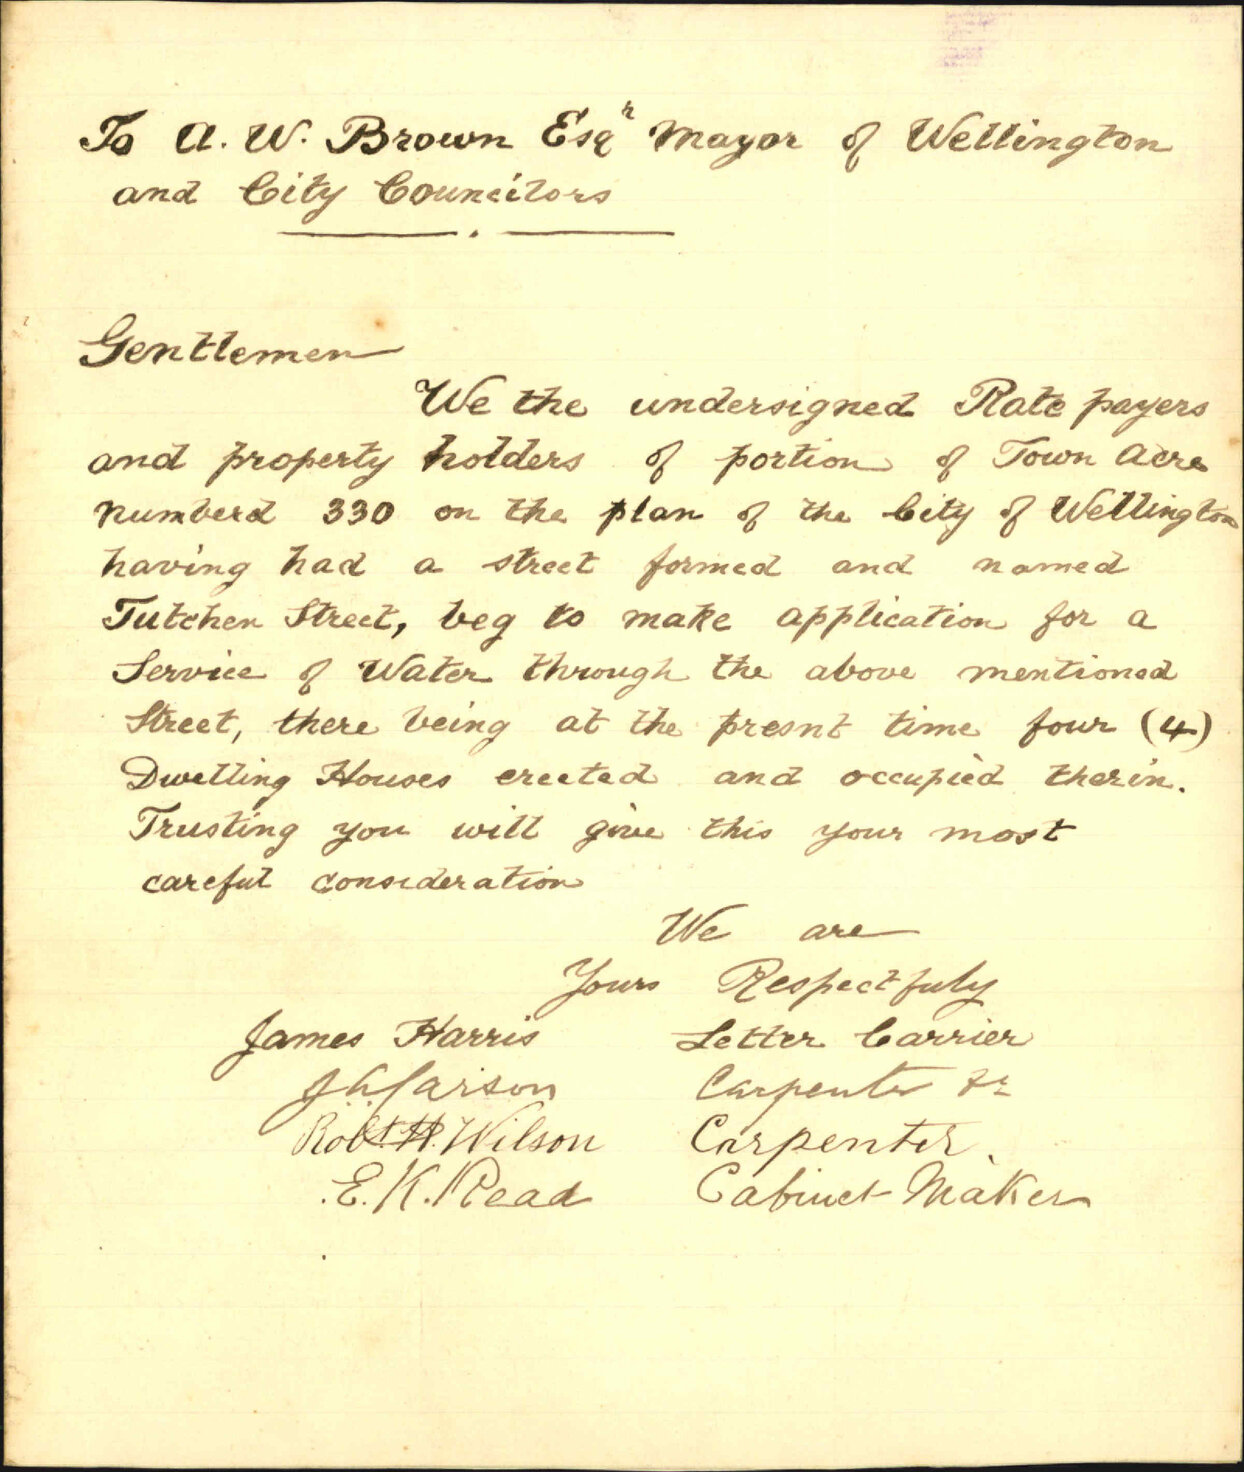 To A. W. Brown Esqr Mayor of Wellington
and City Councilors
Gentlemen
We the undersigned Rate payers
and property holders of portion of Town Acre
numberd 330 on the plan of the City of Wellington
having had a street formed and named
Tutchen Street, beg to make application for a
Service of Water through the above mentioned
Street, there being at the presnt time four (4)
Dwelling Houses erected and occupied therin.
Trusting you will give this your most
careful consideration
We are
Yours Respectfuly
James Harris Letter Carrier
Carpenter
Robt. H. Wilson Carpenter.
E. K. Read Cabinet Maker